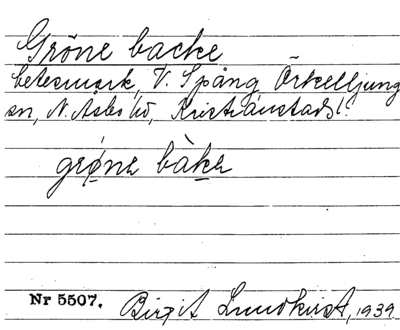 Gröne backe
betesmark, V. Spång Örkelljung
sn, N. Åsbo hd, Kristianstads l.
grøne bàkɐ
Nr 5507. Birgit Lundkvist, 1939.